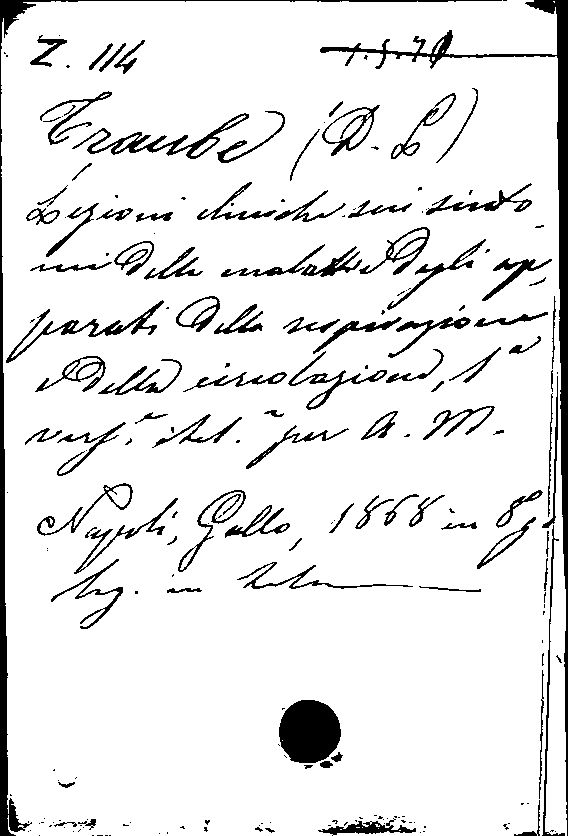 Z. 114 1.5.70
Traube (D. L.)
Lezioni cliniche sui sinto
mi delle malattie degli ap,
parati della respirazione
e della circolazione, 1ª
vers.e ital.a per A. M.
Napoli, Gallo, 1868 in 8º
leg. in tela